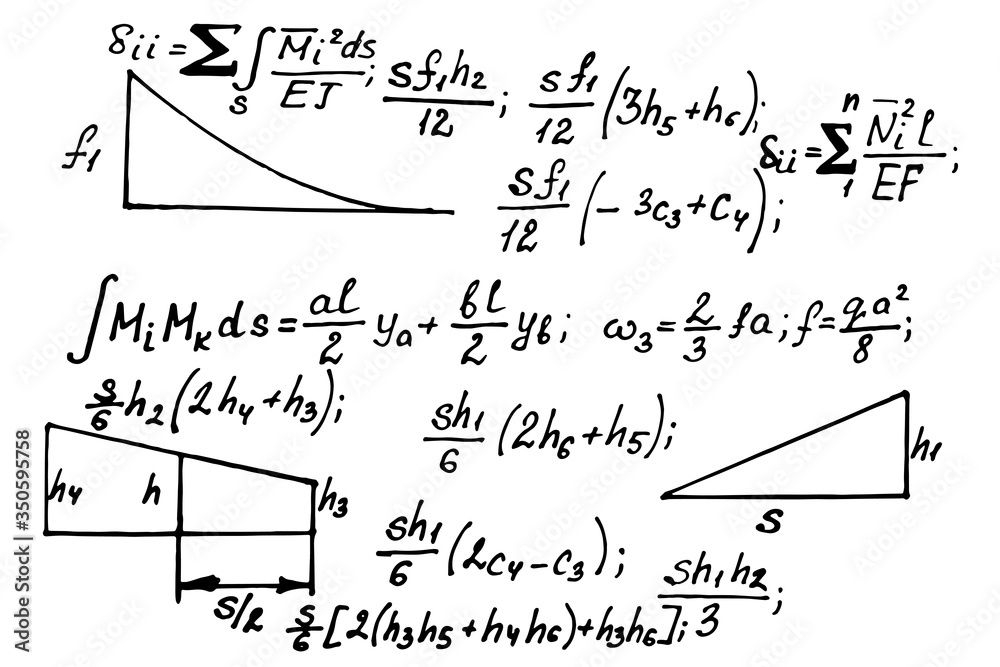 δii = ∑ ∫s M̅i²ds/EJ; sf1h2/12; sf1/12 (3h5+h6);
δii = ∑₁ⁿ N̅i²l/EF;
f1
sf1/12 (-3c3+c4);
∫MiMкds = al/2 ya + bl/2 yb; ω3 = 2/3 fa; f = qa²/8;
s/6 h2(2h4+h3);
sh1/6 (2h6+h5);
h4 h h3
h1
s
sh1/6 (2c4-c3);
sh1h2/3;
s/2
s/6 [2(h3h5+h4h6)+h3h6];
Adobe Stock | #350595758